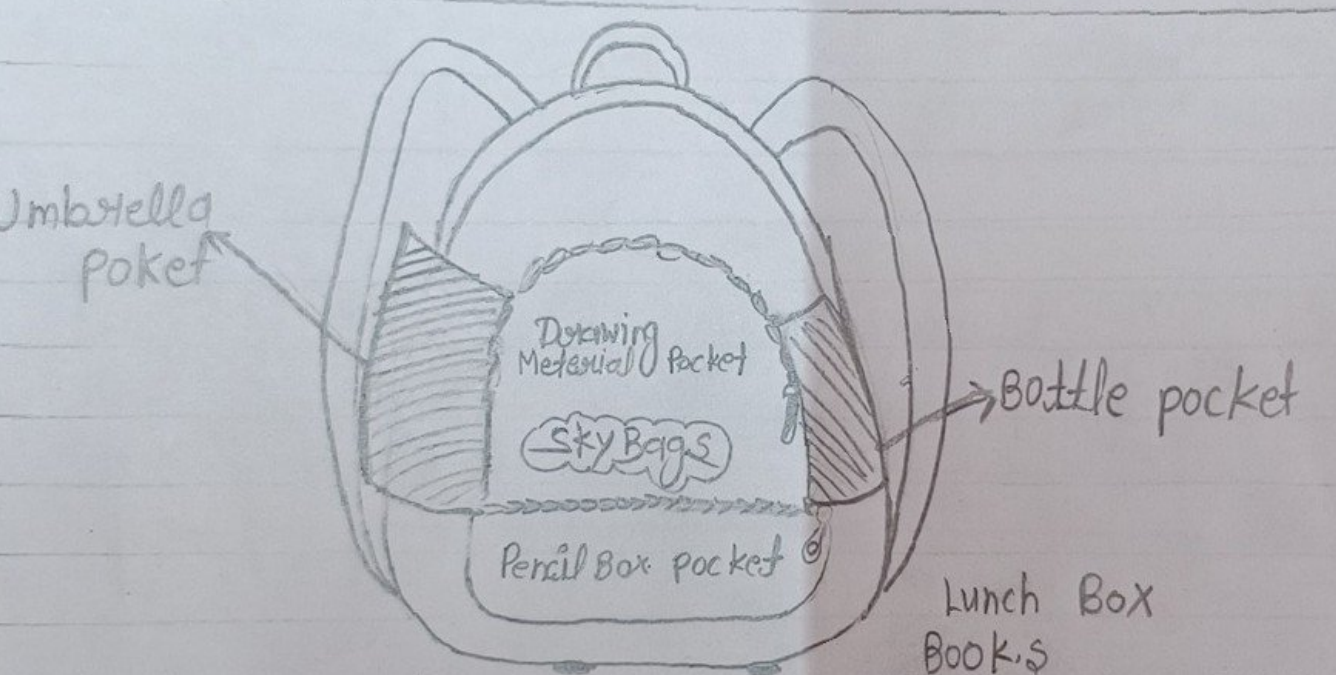 Umbrella
poket
Drawing
Meterial Pocket
Sky Bags
Bottle pocket
Pencil Box pocket
Lunch Box
Book.s